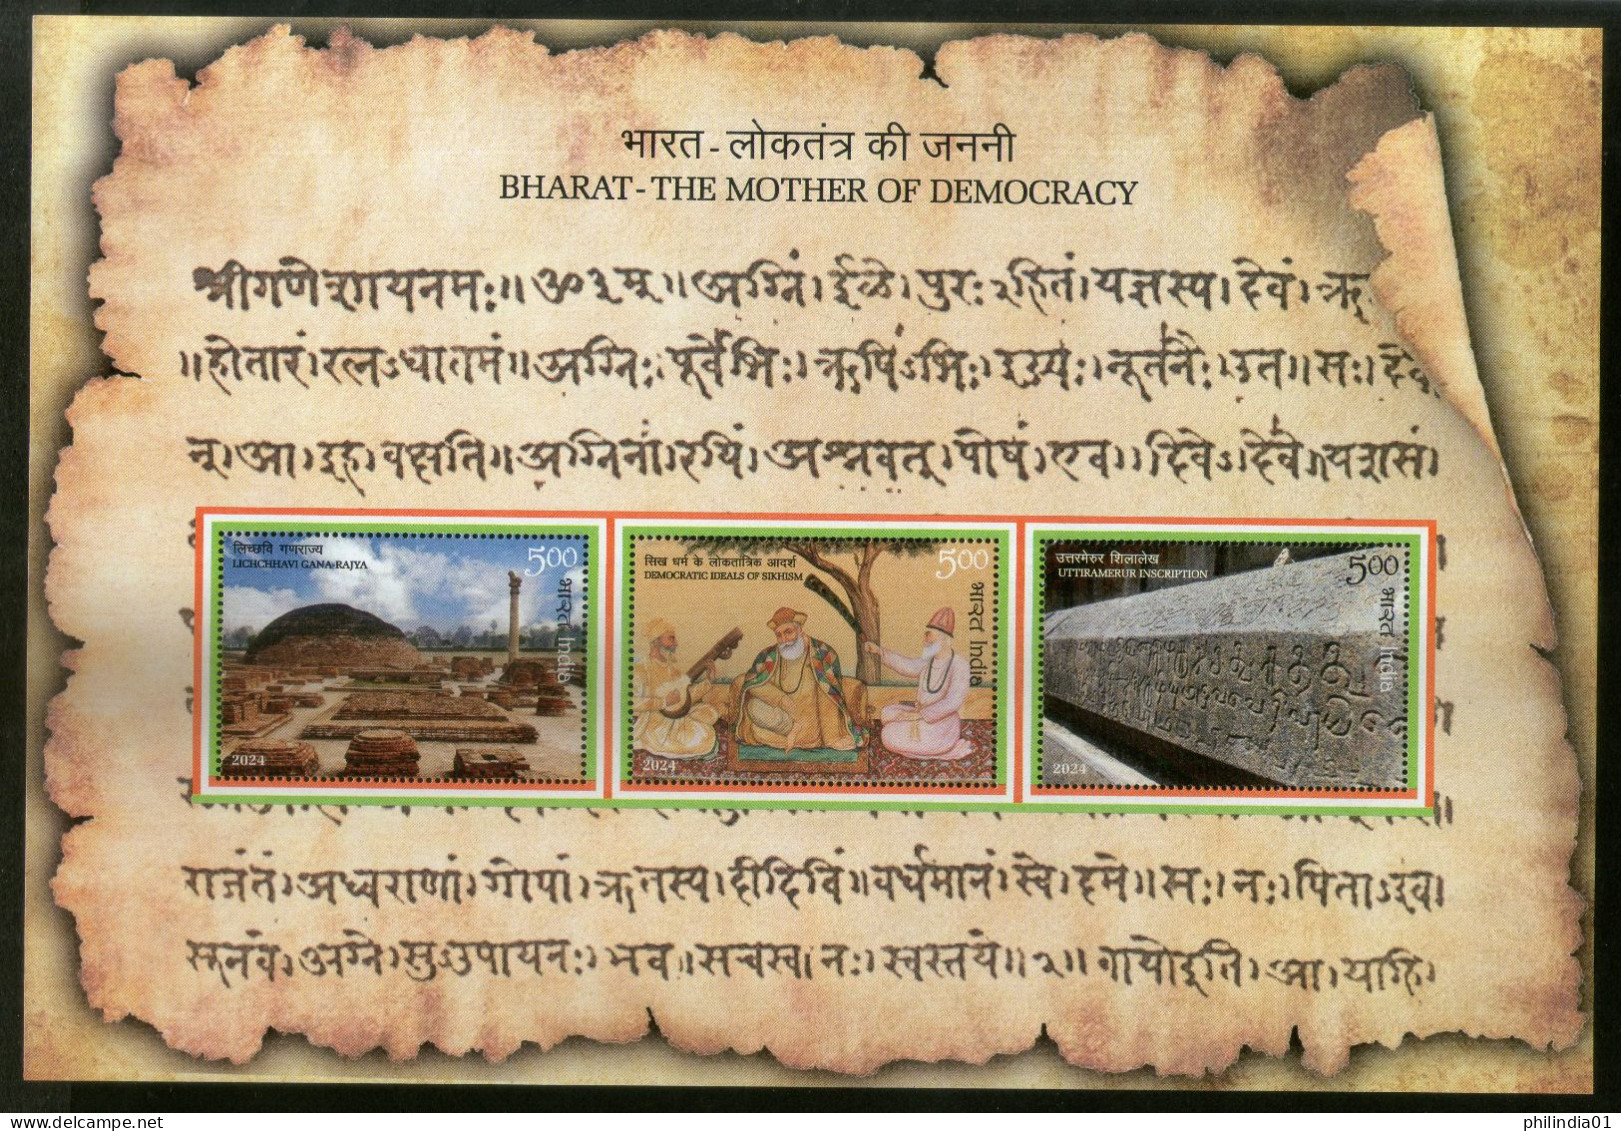 भारत - लोकतंत्र की जननी
BHARAT - THE MOTHER OF DEMOCRACY
श्रीगणेशायनमः॥ ॐ३म्॥ अग्निं। ईळे। पुरःऽहितं। यज्ञस्य। देवं। ऋ
॥होतारं। रत्नऽधातमं॥ अग्निः। पूर्वेभिः। ऋषिऽभिः। ईड्यः। नूतनैः। उत॥ सः। दे
न्। आ। इह। वक्षति॥ अग्निना। रयिं। अश्नवत्। पोषं। एव। दिवेऽदिवे। यशसं।
लिच्छवि गणराज्य
LICHCHHAVI GANA-RAJYA
500
भारत India
2024
सिख धर्म के लोकतांत्रिक आदर्श
DEMOCRATIC IDEALS OF SIKHISM
500
भारत India
2024
उत्तरमेरुर शिलालेख
UTTIRAMERUR INSCRIPTION
500
भारत India
2024
राजंतं। अध्वराणां। गोपां। ऋतस्य। दीदिविं॥ वर्धमानं। स्वे। दमे॥ सः। नः। पिताऽइव।
सूनवे। अग्ने। सुऽउपायनः। भव॥ सचस्व। नः। स्वस्तये॥ २॥ वायो इति। आ। याहि।
delcampe.net
philindia01